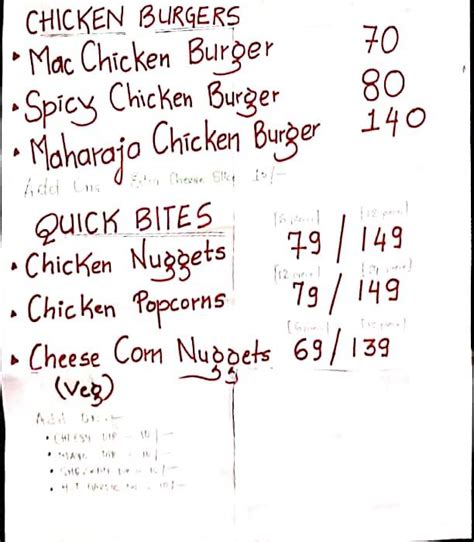 CHICKEN BURGERS
• Mac Chicken Burger 70
• Spicy Chicken Burger 80
• Maharaja Chicken Burger 140
Add Ons Extra Cheese Slice 10/-
QUICK BITES
• Chicken Nuggets 79 / 149
[12 pcs]
• Chicken Popcorns 79 / 149
• Cheese Corn Nuggets 69 / 139
(Veg)
Add On
• CHEESY DIP - 10/-
• DIP - 10/-
• DIP - 10/-
• - 10/-